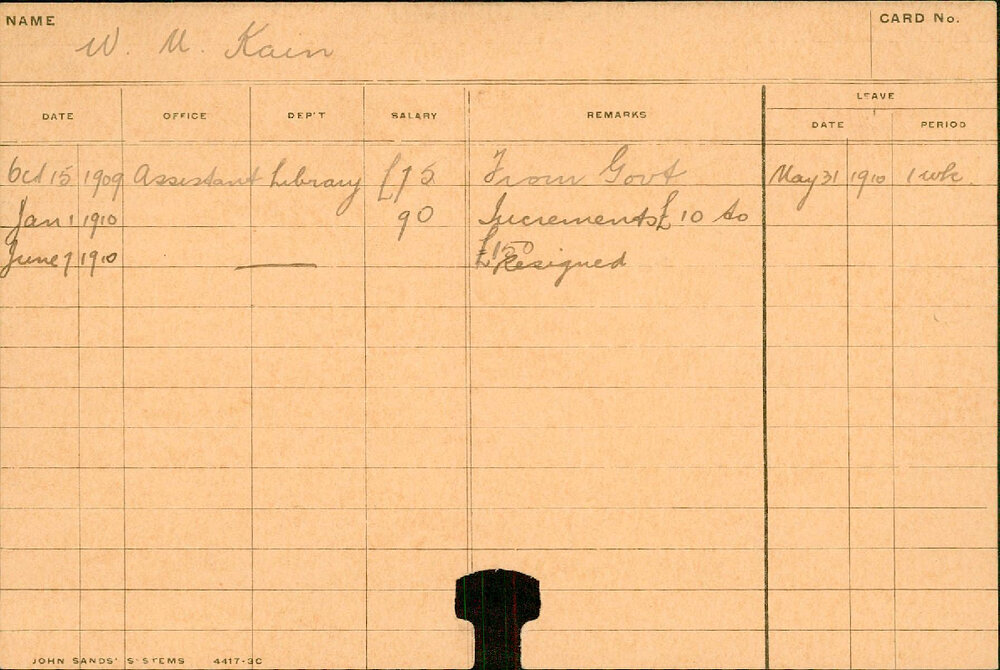 NAME W. M. Kain CARD No.
LEAVE
DATE OFFICE DEP'T SALARY REMARKS DATE PERIOD
Oct 15 1909 Assistant Library £75 From Govt May 31 1910 1 wk.
Jan 1 1910 90 Increments £10 to
£150
June 7 1910 — Resigned
JOHN SANDS' SYSTEMS 4417-3C